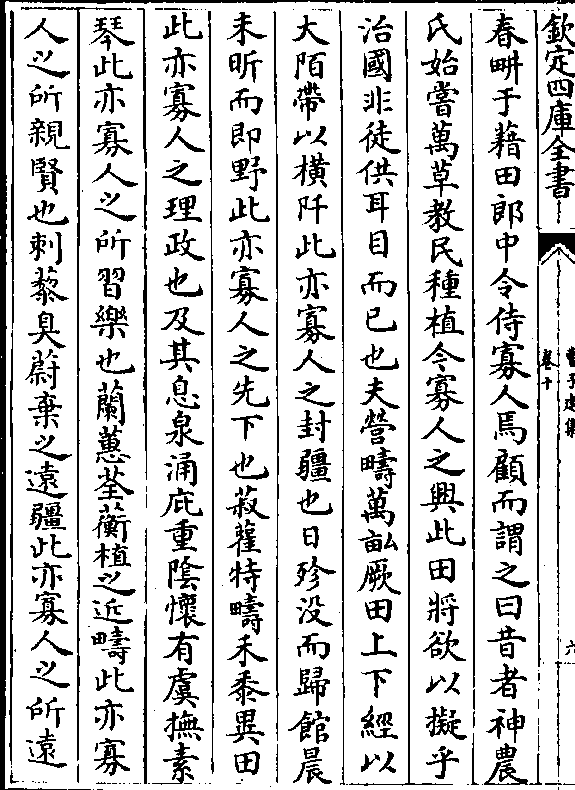 欽定四庫全書
曹子建集
卷十
六
春畊于藉田郎中令侍寡人焉顧而謂之曰昔者神農
氏始嘗萬草教民種植令寡人之興此田將欲以擬乎
治國非徒供耳目而已也夫營疇萬畝厥田上下經以
大陌帶以橫阡此亦寡人之封疆也日殄没而歸館晨
未昕而即野此亦寡人之先下也菽藿特疇禾黍異田
此亦寡人之理政也及其息泉涌庇重陰懷有虞撫素
琴此亦寡人之所習樂也蘭蕙荃蘅植之近疇此亦寡
人之所親賢也刺藜臭蔚棄之遠疆此亦寡人之所遠